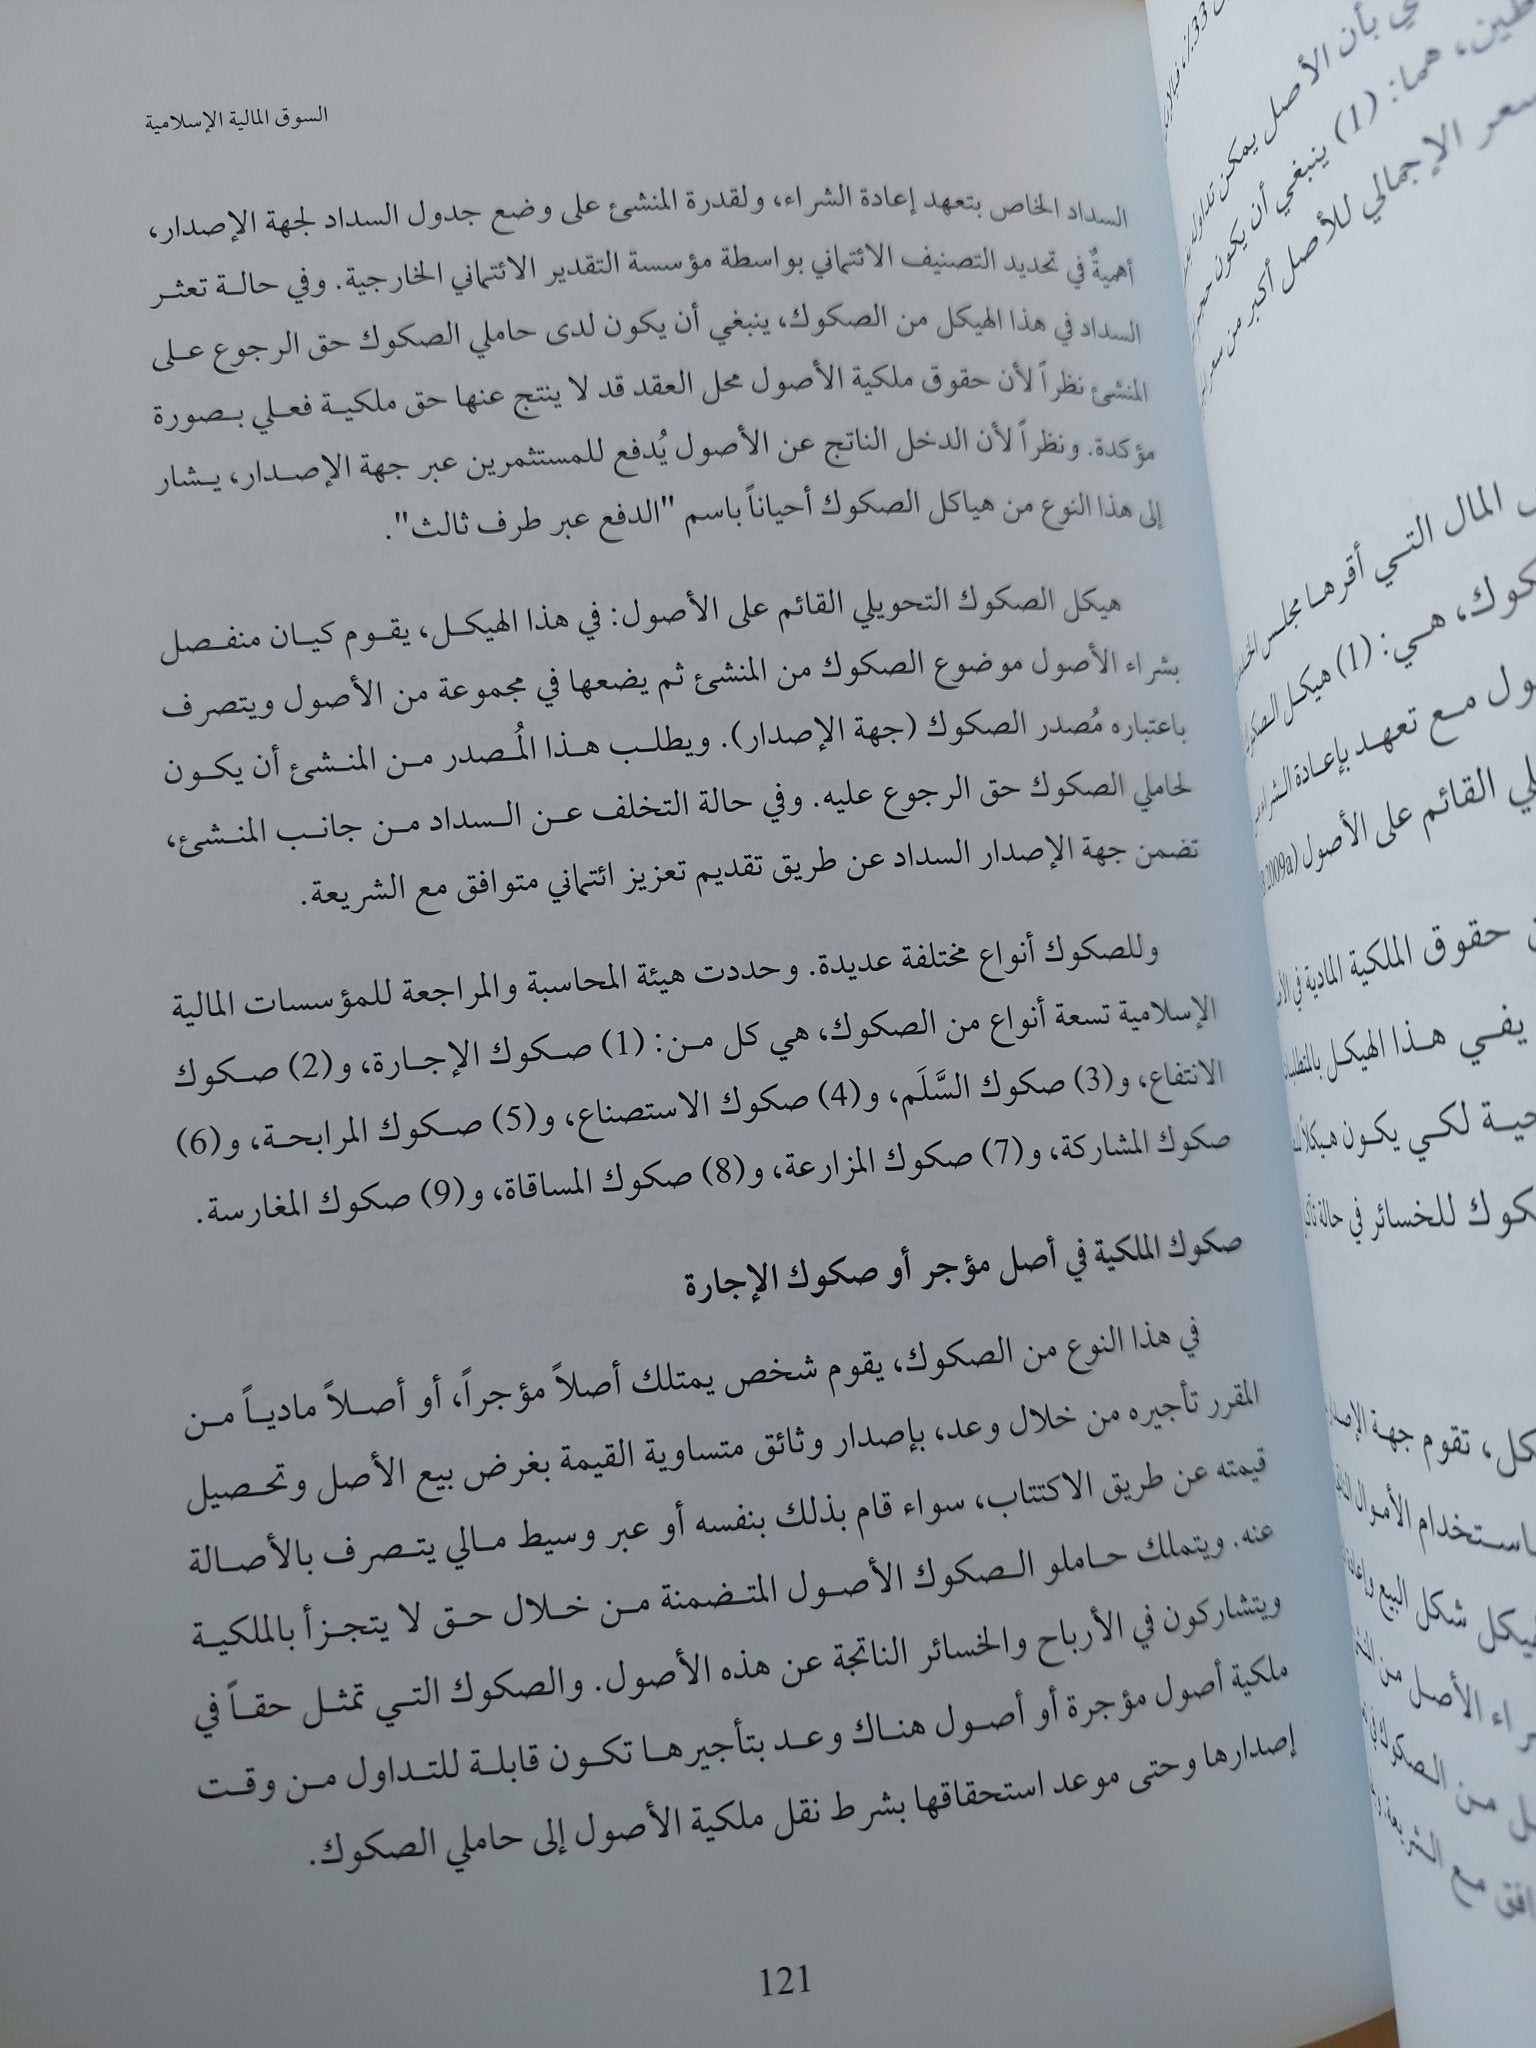 السوق المالية الإسلامية
السداد الخاص بتعهد إعادة الشراء، ولقدرة المنشئ على وضع جدول السداد لجهة الإصدار،
أهميةٌ في تحديد التصنيف الائتماني بواسطة مؤسسة التقدير الائتماني الخارجية. وفي حالة تعثر
السداد في هذا الهيكل من الصكوك، ينبغي أن يكون لدى حاملي الصكوك حق الرجوع على
المنشئ نظراً لأن حقوق ملكية الأصول محل العقد قد لا ينتج عنها حق ملكية فعلي بصورة
مؤكدة. ونظراً لأن الدخل الناتج عن الأصول يُدفع للمستثمرين عبر جهة الإصدار، يشار
إلى هذا النوع من هياكل الصكوك أحياناً باسم "الدفع عبر طرف ثالث".
هيكل الصكوك التحويلي القائم على الأصول: في هذا الهيكل، يقوم كيان منفصل
بشراء الأصول موضوع الصكوك من المنشئ ثم يضعها في مجموعة من الأصول ويتصرف
باعتباره مُصدر الصكوك (جهة الإصدار). ويطلب هذا المُصدر من المنشئ أن يكون
لحاملي الصكوك حق الرجوع عليه. وفي حالة التخلف عن السداد من جانب المنشئ،
تضمن جهة الإصدار السداد عن طريق تقديم تعزيز ائتماني متوافق مع الشريعة.
وللصكوك أنواع مختلفة عديدة. وحددت هيئة المحاسبة والمراجعة للمؤسسات المالية
الإسلامية تسعة أنواع من الصكوك، هي كل من: (1) صكوك الإجارة، و(2) صكوك
الانتفاع، و(3) صكوك السَّلَم، و(4) صكوك الاستصناع، و(5) صكوك المرابحة، و(6)
صكوك المشاركة، و(7) صكوك المزارعة، و(8) صكوك المساقاة، و(9) صكوك المغارسة.
صكوك الملكية في أصل مؤجر أو صكوك الإجارة
في هذا النوع من الصكوك، يقوم شخص يمتلك أصلاً مؤجراً، أو أصلاً مادياً من
المقرر تأجيره من خلال وعد، بإصدار وثائق متساوية القيمة بغرض بيع الأصل وتحصيل
قيمته عن طريق الاكتتاب، سواء قام بذلك بنفسه أو عبر وسيط مالي يتصرف بالأصالة
عنه. ويتملك حاملو الصكوك الأصول المتضمنة من خلال حق لا يتجزأ بالملكية
ويتشاركون في الأرباح والخسائر الناتجة عن هذه الأصول. والصكوك التي تمثل حقاً في
ملكية أصول مؤجرة أو أصول هناك وعد بتأجيرها تكون قابلة للتداول من وقت
إصدارها وحتى موعد استحقاقها بشرط نقل ملكية الأصول إلى حاملي الصكوك.
121
بأن الأصل يمكن
هما: (1) ينبغي أن يكون
الإجمالي للأصل أكبر من
المال التي أقرها مجلس
هي: (1) هيكل الصكوك
مع تعهد بإعادة الشراء
القائم على الأصول (2009a
حقوق الملكية المادية في
يفي هذا الهيكل
لكي يكون هيكلاً
للخسائر في حالة
تقوم جهة
الأموال
شكل البيع
الأصل من
من الصكوك
مع